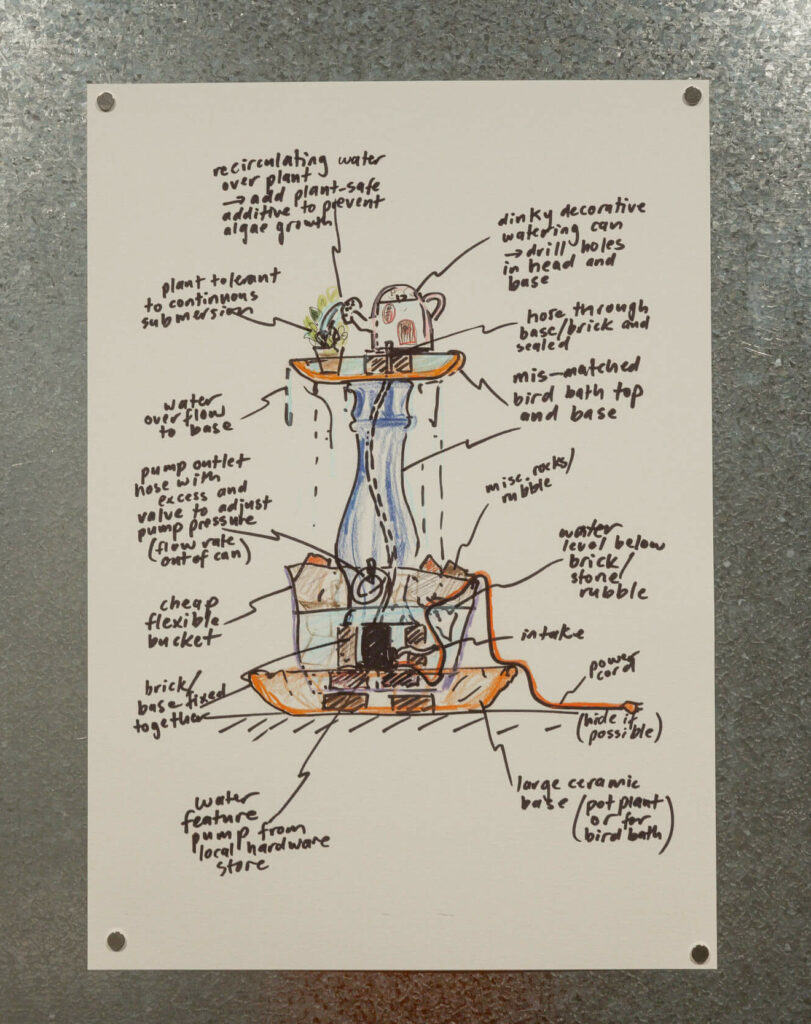 recirculating water
over plant
→ add plant-safe
additive to prevent
algae growth
dinky decorative
watering can
→ drill holes
in head and
base
plant tolerant
to continuous
submersion
hose through
base/brick and
sealed
mis-matched
bird bath top
and base
water
overflow
to base
pump outlet
hose with
excess and
valve to adjust
pump pressure
(flow rate
out of can)
misc. rocks/
rubble
water
level below
brick
stone/
rubble
cheap
flexible
bucket
intake
power
cord
(hide if
possible)
brick/
base fixed
together
large ceramic
base (pot plant
or for
bird bath)
water
feature
pump from
local hardware
store